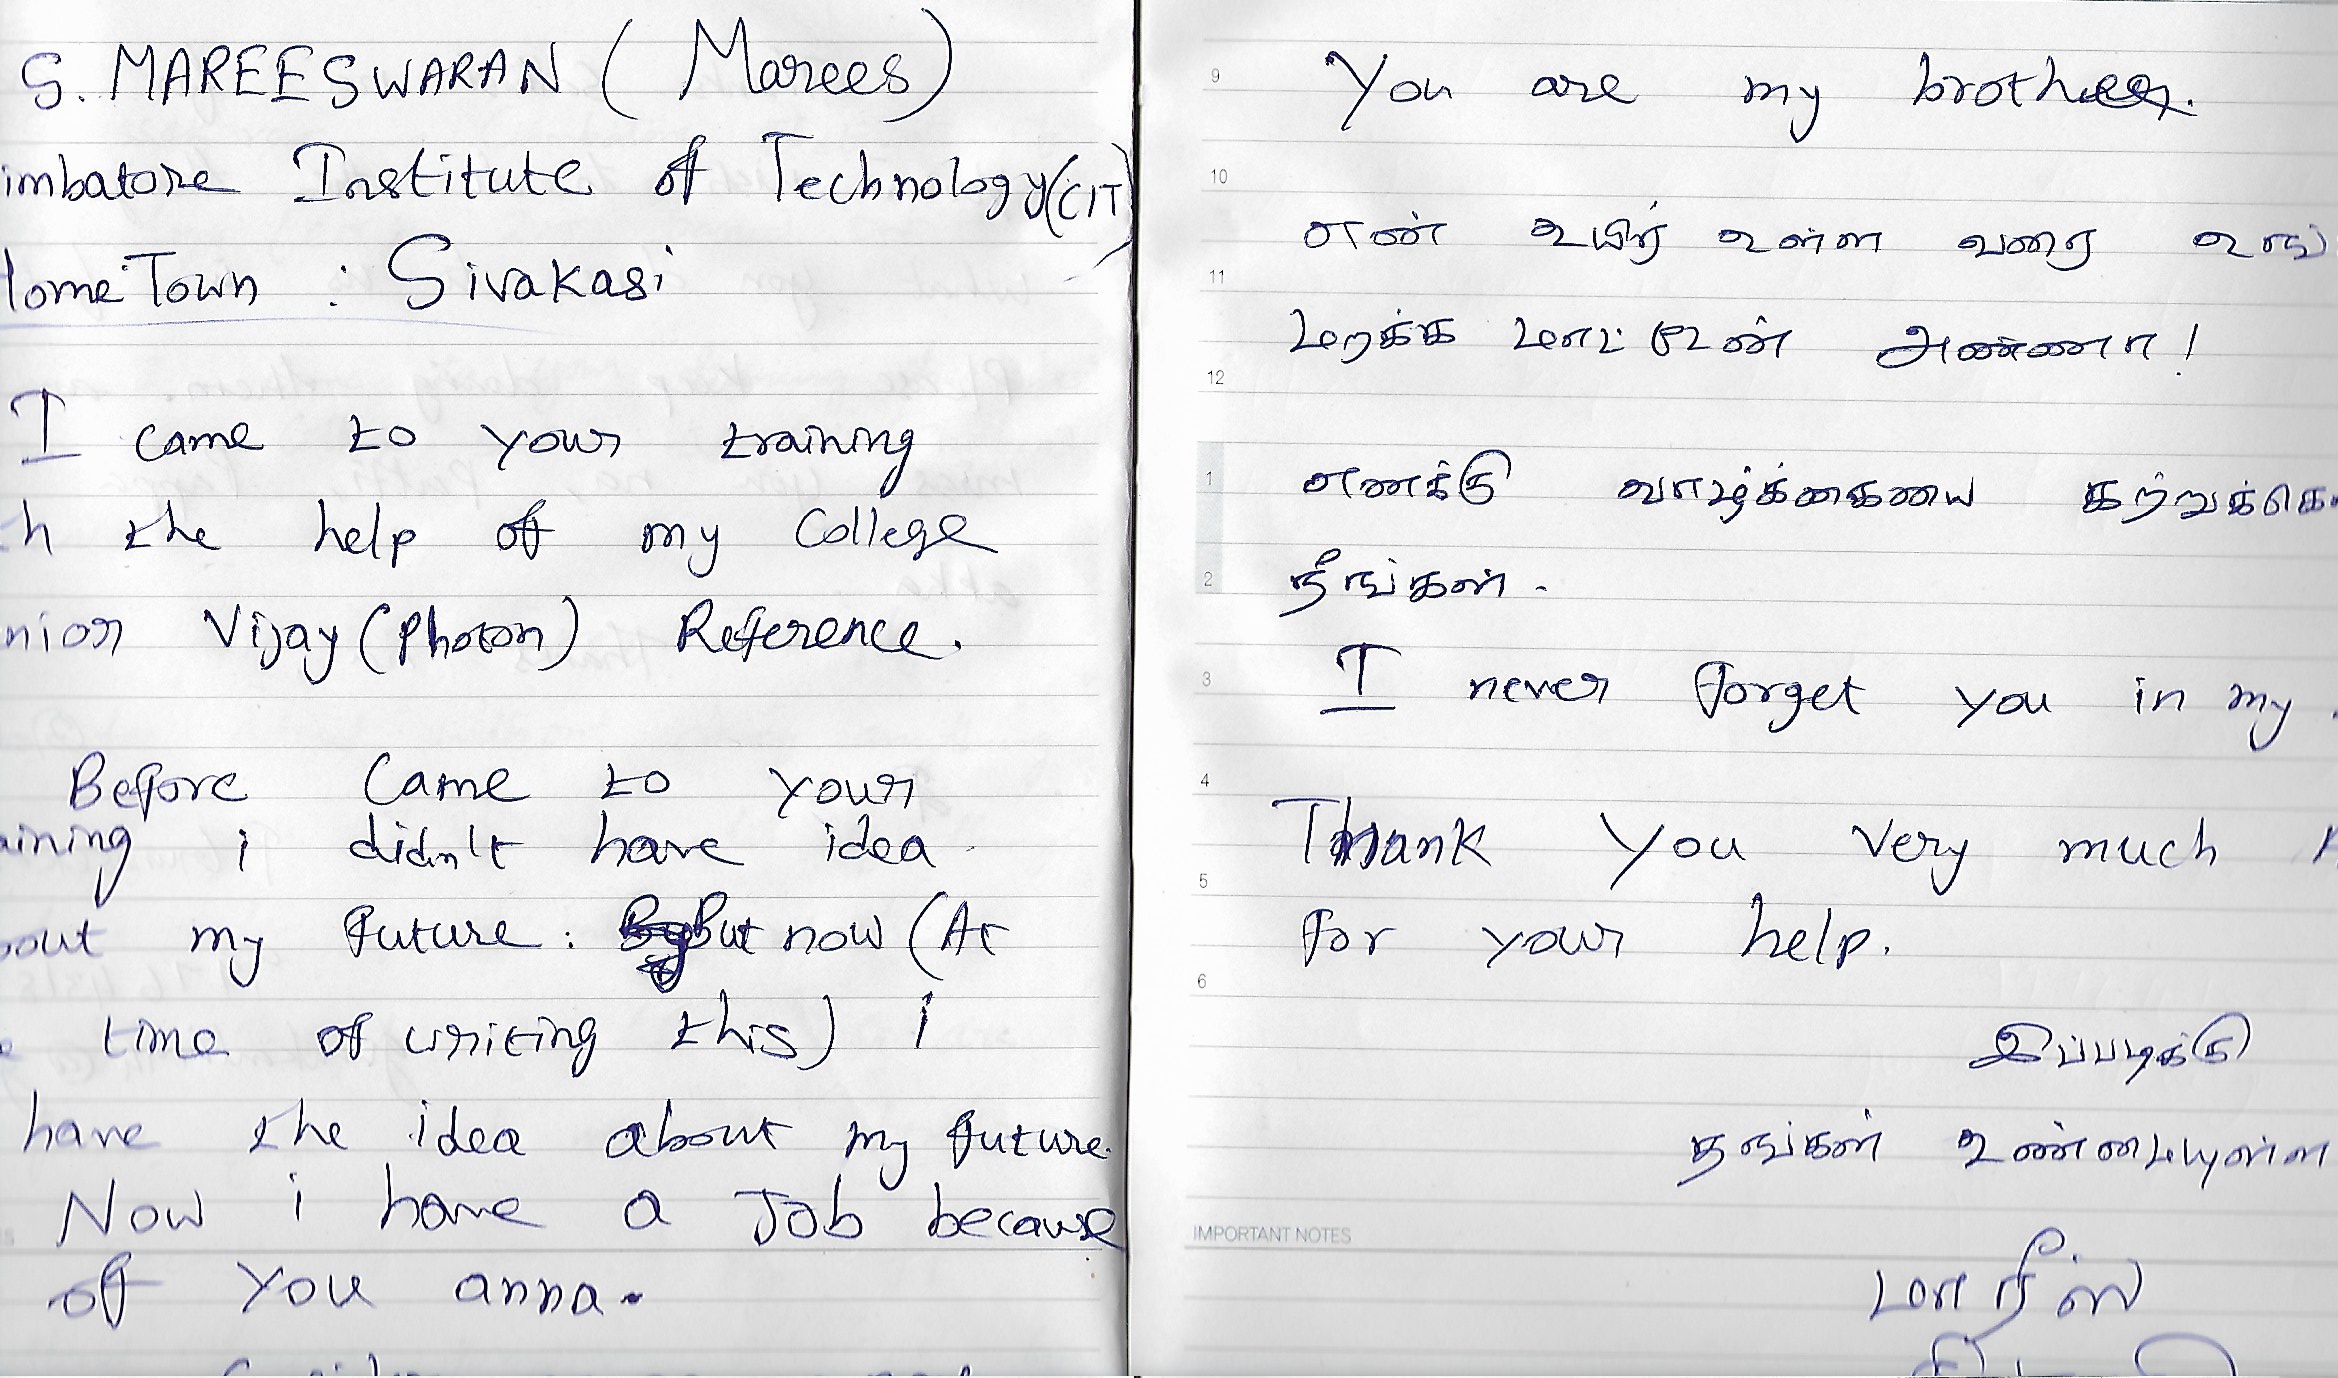 S. MAREESWARAN (Marees)
imbatore Institute of Technology (CIT)
lome Town : Sivakasi
I came to your training
h the help of my College
nior Vijay (Photon) Reference.
Before Came to your
aining i didn't have idea
out my future: But now (At
time of writing this) i
have the idea about my future.
Now i have a Job because
of you anna.
9
You are my brother.
10
என் உயிர் உள்ள வரை உங்
11
மறக்க மாட்டேன் அண்ணா!
12
1
எனக்கு வாழ்க்கையை கற்றுக்கொ
2
நீங்கள்.
3
I never forget you in my
4
Thank you very much
5
for your help.
6
இப்படிக்கு
தங்கள் உண்மையுள்ள
IMPORTANT NOTES
மாரீஸ்